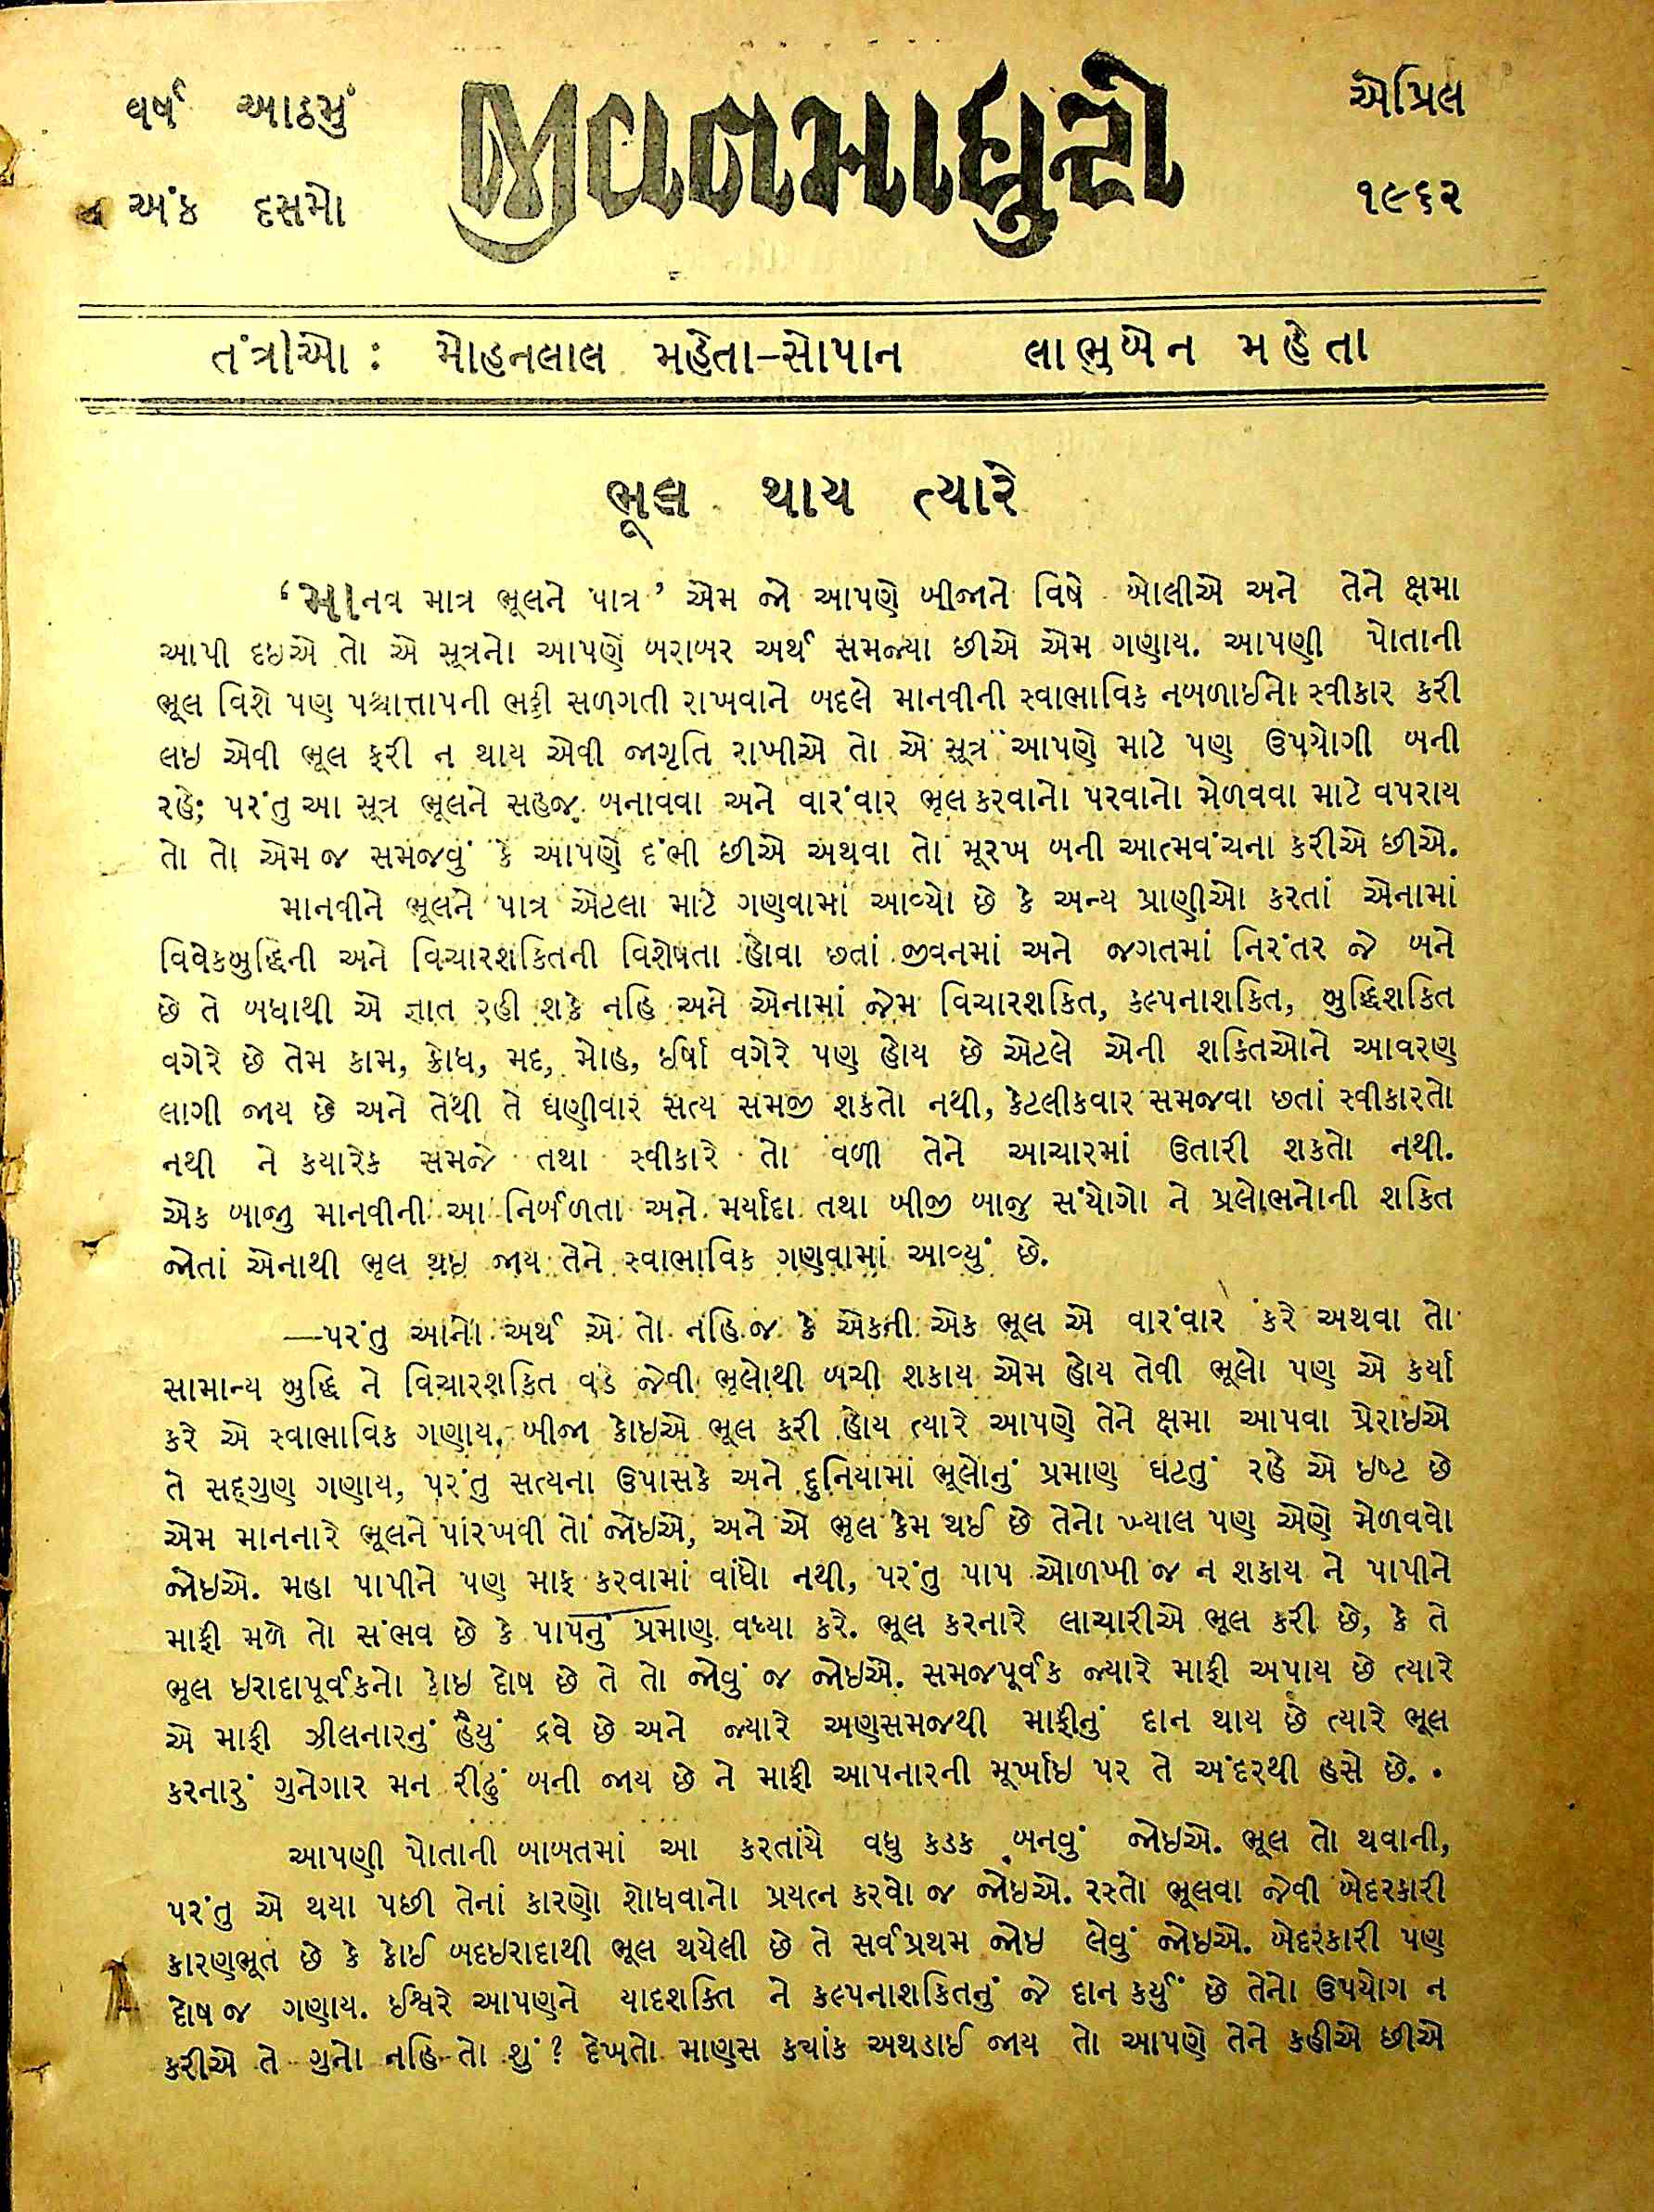 વર્ષ આઠમું
અંક દસમો
જીવનમાધુરી
એપ્રિલ
૧૯૬૨
તંત્રીઓ : મોહનલાલ મહેતા–સોપાન લાભુબેન મહેતા
ભૂલ થાય ત્યારે
‘માનવ માત્ર ભૂલને પાત્ર’ એમ જો આપણે બીજાને વિષે બોલીએ અને તેને ક્ષમા
આપી દઇએ તો એ સૂત્રનો આપણે બરાબર અર્થ સમજ્યા છીએ એમ ગણાય. આપણી પોતાની
ભૂલ વિશે પણ પશ્ચાત્તાપની ભઠ્ઠી સળગતી રાખવાને બદલે માનવીની સ્વાભાવિક નબળાઈનો સ્વીકાર કરી
લઇ એવી ભૂલ ફરી ન થાય એવી જાગૃતિ રાખીએ તો એ સૂત્ર આપણે માટે પણ ઉપયોગી બની
રહે; પરંતુ આ સૂત્ર ભૂલને સહજ બનાવવા અને વારંવાર ભૂલ કરવાનો પરવાનો મેળવવા માટે વપરાય
તો તો એમ જ સમજવું કે આપણે દંભી છીએ અથવા તો મૂરખ બની આત્મવંચના કરીએ છીએ.
માનવીને ભૂલને પાત્ર એટલા માટે ગણવામાં આવ્યો છે કે અન્ય પ્રાણીઓ કરતાં એનામાં
વિવેકબુદ્ધિની અને વિચારશકિતની વિશેષતા હોવા છતાં જીવનમાં અને જગતમાં નિરંતર જે બને
છે તે બધાથી એ જ્ઞાત રહી શકે નહિ અને એનામાં જેમ વિચારશકિત, કલ્પનાશકિત, બુદ્ધિશકિત
વગેરે છે તેમ કામ, ક્રોધ, મદ, મોહ, ઈર્ષા વગેરે પણ હોય છે એટલે એની શક્તિઓને આવરણ
લાગી જાય છે અને તેથી તે ઘણીવાર સત્ય સમજી શકતો નથી, કેટલીકવાર સમજવા છતાં સ્વીકારતો
નથી ને કયારેક સમજે તથા સ્વીકારે તો વળી તેને આચારમાં ઉતારી શકતો નથી.
એક બાજુ માનવીની આ નિર્બળતા અને મર્યાદા તથા બીજી બાજુ સંયોગો ને પ્રલોભનોની શકિત
જોતાં એનાથી ભૂલ થઇ જાય તેને સ્વાભાવિક ગણવામાં આવ્યું છે.
—પરંતુ આનો અર્થ એ તો નહિ જ કે એકની એક ભૂલ એ વારંવાર કરે અથવા તો
સામાન્ય બુદ્ધિ ને વિચારશકિત વડે જેવી ભૂલોથી બચી શકાય એમ હોય તેવી ભૂલો પણ એ કર્યા
કરે એ સ્વાભાવિક ગણાય. બીજા કોઇએ ભૂલ કરી હોય ત્યારે આપણે તેને ક્ષમા આપવા પ્રેરાઇએ
તે સદ્‌ગુણ ગણાય, પરંતુ સત્યના ઉપાસકે અને દુનિયામાં ભૂલોનું પ્રમાણ ઘટતું રહે એ ઇષ્ટ છે
એમ માનનારે ભૂલને પારખવી તો જોઇએ, અને એ ભૂલ કેમ થઈ છે તેનો ખ્યાલ પણ એણે મેળવવો
જોઇએ. મહા પાપીને પણ માફ કરવામાં વાંધો નથી, પરંતુ પાપ ઓળખી જ ન શકાય ને પાપીને
માફી મળે તો સંભવ છે કે પાપનું પ્રમાણ વધ્યા કરે. ભૂલ કરનારે લાચારીએ ભૂલ કરી છે, કે તે
ભૂલ ઇરાદાપૂર્વકનો કોઇ દોષ છે તે તો જોવું જ જોઇએ. સમજપૂર્વક જ્યારે માફી અપાય છે ત્યારે
એ માફી ઝીલનારનું હૈયું દ્રવે છે અને જ્યારે અણસમજથી માફીનું દાન થાય છે ત્યારે ભૂલ
કરનારું ગુનેગાર મન રીઢું બની જાય છે ને માફી આપનારની મૂર્ખાઇ પર તે અંદરથી હસે છે.
આપણી પોતાની બાબતમાં આ કરતાંયે વધુ કડક બનવું જોઇએ. ભૂલ તો થવાની,
પરંતુ એ થયા પછી તેનાં કારણો શોધવાનો પ્રયત્ન કરવો જ જોઇએ. રસ્તો ભૂલવા જેવી બેદરકારી
કારણભૂત છે કે કોઈ બદઇરાદાથી ભૂલ થયેલી છે તે સર્વપ્રથમ જોઇ લેવું જોઇએ. બેદરકારી પણ
દોષ જ ગણાય. ઈશ્વરે આપણને યાદશક્તિ ને કલ્પનાશકિતનું જે દાન કર્યું છે તેનો ઉપયોગ ન
કરીએ તે ગુનો નહિ તો શું ? દેખતો માણસ કયાંક અથડાઈ જાય તો આપણે તેને કહીએ છીએ